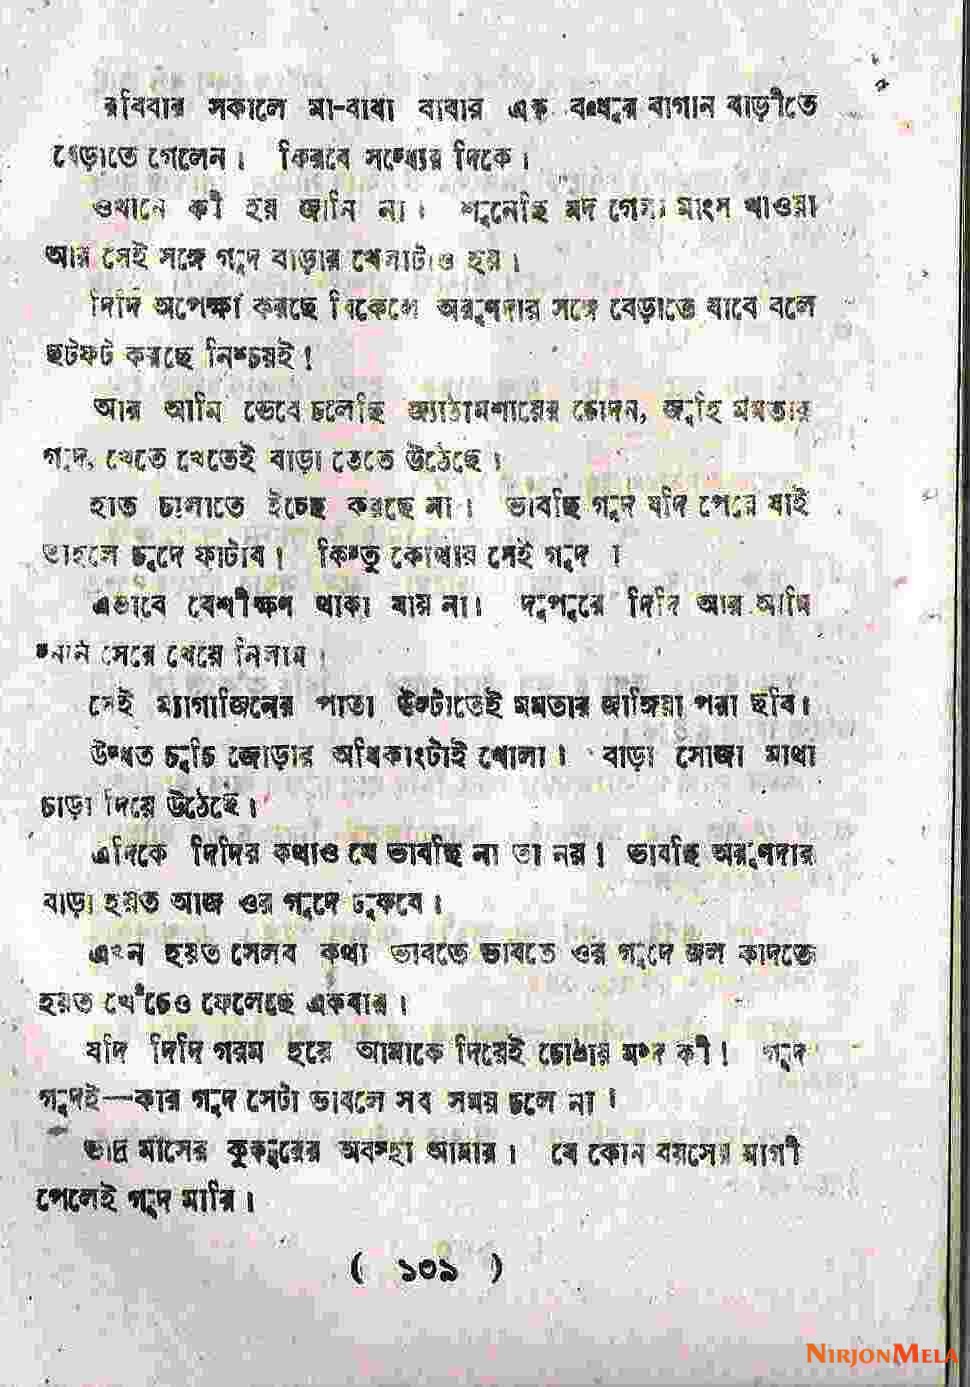 রবিবার সকালে মা-বাবা বাবার এক বন্ধুর বাগান বাড়ীতে
বেড়াতে গেলেন। ফিরবে সন্ধ্যের দিকে।
ওখানে কী হয় জানি না। শুনেছি মদ গেলা মাংস খাওয়া
আর সেই সঙ্গে গুদ বাড়ার খেলাটাও হয়।
দিদি অপেক্ষা করছে বিকেলে অরুণদার সঙ্গে বেড়াতে যাবে বলে
ছটফট করছে নিশ্চয়ই!
আর আমি ভেবে চলেছি জ্যাঠামশায়ের চোদন, জুহি মমতার
গুদ, খেতে খেতেই বাড়া তেতে উঠেছে।
হাত চালাতে ইচ্ছে করছে না। ভাবছি গুদ যদি পেয়ে যাই
তাহলে চুদে ফাটাব! কিন্তু কোথায় সেই গুদ !
এভাবে বেশীক্ষণ থাকা যায় না। দুপুরে দিদি আর আমি
স্নান সেরে খেয়ে নিলাম।
সেই ম্যাগাজিনের পাতা উল্টাতেই মমতার জাঙ্গিয়া পরা ছবি।
উদ্ধত চুচি জোড়ার অধিকাংটাই খোলা। বাড়া সোজা মাথা
চাড়া দিয়ে উঠেছে।
এদিকে দিদির কথাও যে ভাবছি না তা নয়! ভাবছি অরুণদার
বাড়া হয়ত আজ ওর গুদে ঢুকবে।
এখন হয়ত সেসব কথা ভাবতে ভাবতে ওর গুদে জল কাদছে
হয়ত খেঁচেও ফেলেছে একবার।
যদি দিদি গরম হয়ে আমাকে দিয়েই চোদায় মন্দ কী! গুদ
গুদই—কার গুদ সেটা ভাবলে সব সময় চলে না।
ভাদ্র মাসের কুকুরের অবস্হা আমার। যে কোন বয়সের মাগী
পেলেই গুদ মারি।
( ১৩৯ )
NIRJONMELA